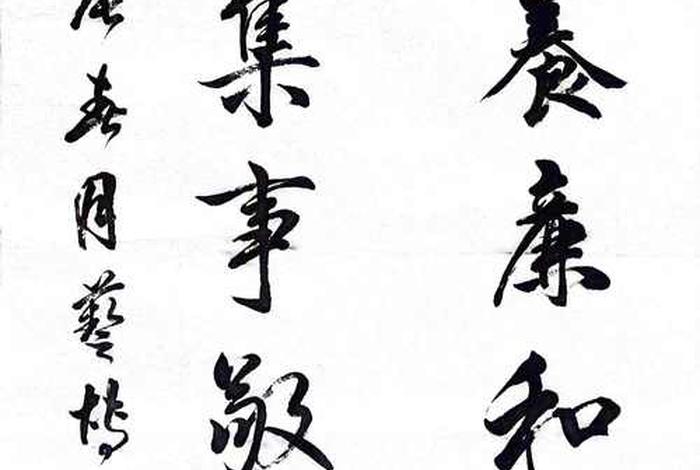 養廉和
集事敬
春月藝